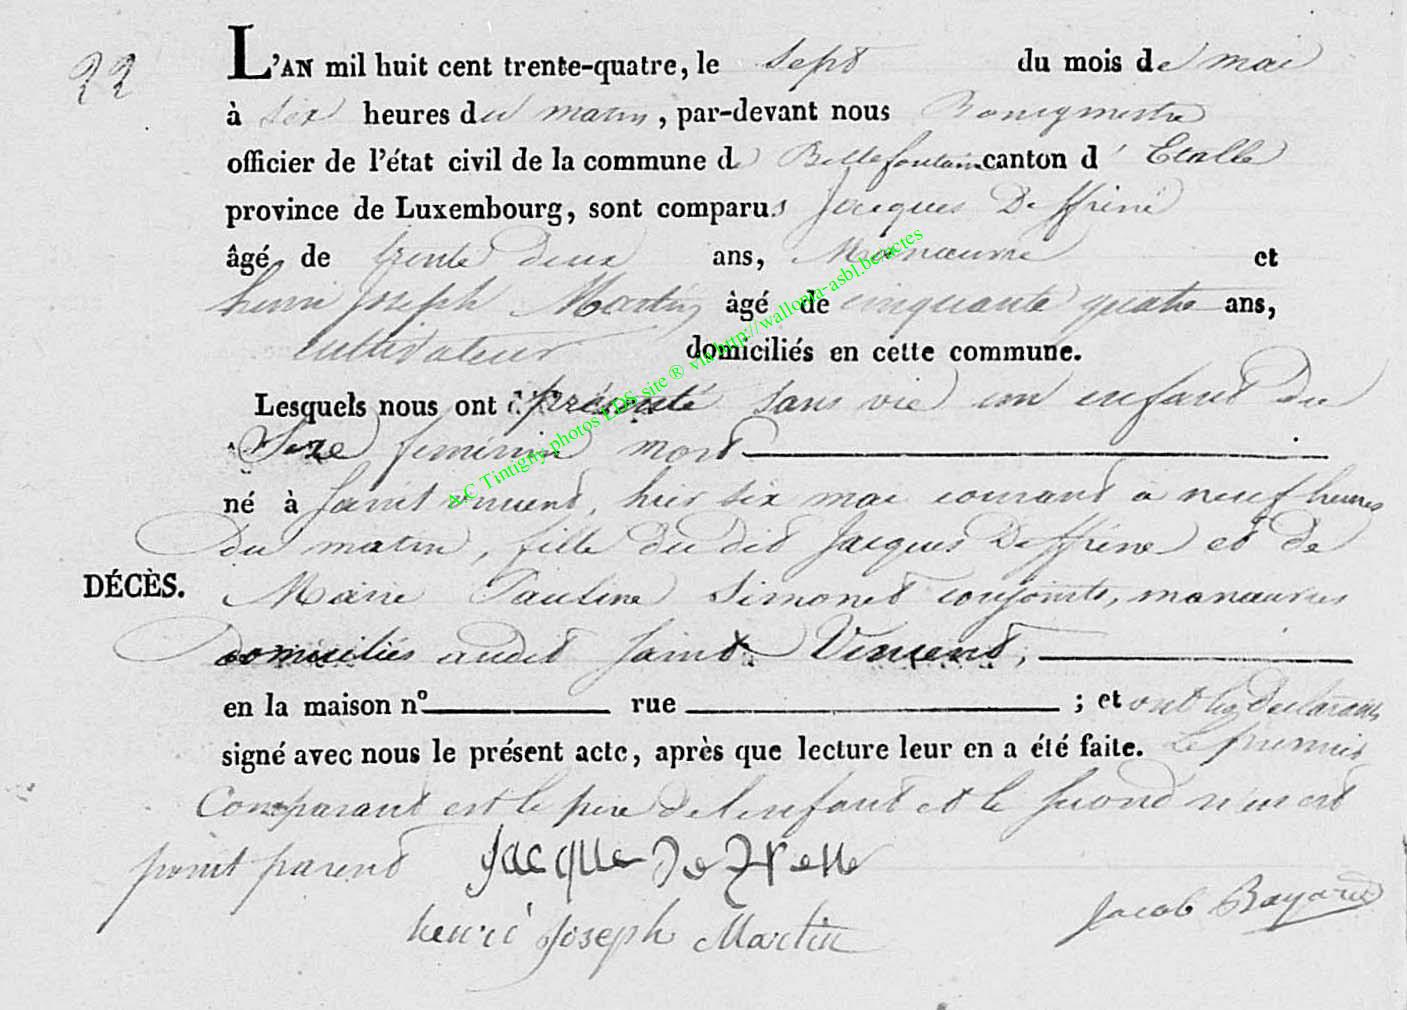 22
L'AN mil huit cent trente-quatre, le sept du mois de mai
à six heures du matin, par-devant nous Bourgmestre
officier de l'état civil de la commune de Bellefontaine canton d'Etalle
province de Luxembourg, sont comparus Jacques Deffrene
âgé de trente deux ans, Manœuvre et
henri Joseph Martin âgé de cinquante quatre ans,
cultivateur domiciliés en cette commune.
Lesquels nous ont présenté sans vie un enfant du
Sexe feminin mort
né à Saint Vincent, hier six mai courant à neuf heures
du matin, fille du dit Jacques Deffrene et de
DÉCÈS. Marie Pauline Simonet conjoints, manœuvres
domiciliés audit Saint Vincent,
en la maison nº rue ; et ont les declarants
signé avec nous le présent acte, après que lecture leur en a été faite. Le premier
Comparant est le pere de l'enfant et le second n'en est
point parent Jacque
henri Joseph Martin
Jacob Bayard
A.C Tintigny photos LDS site ® via http://wallonia-asbl.be/actes